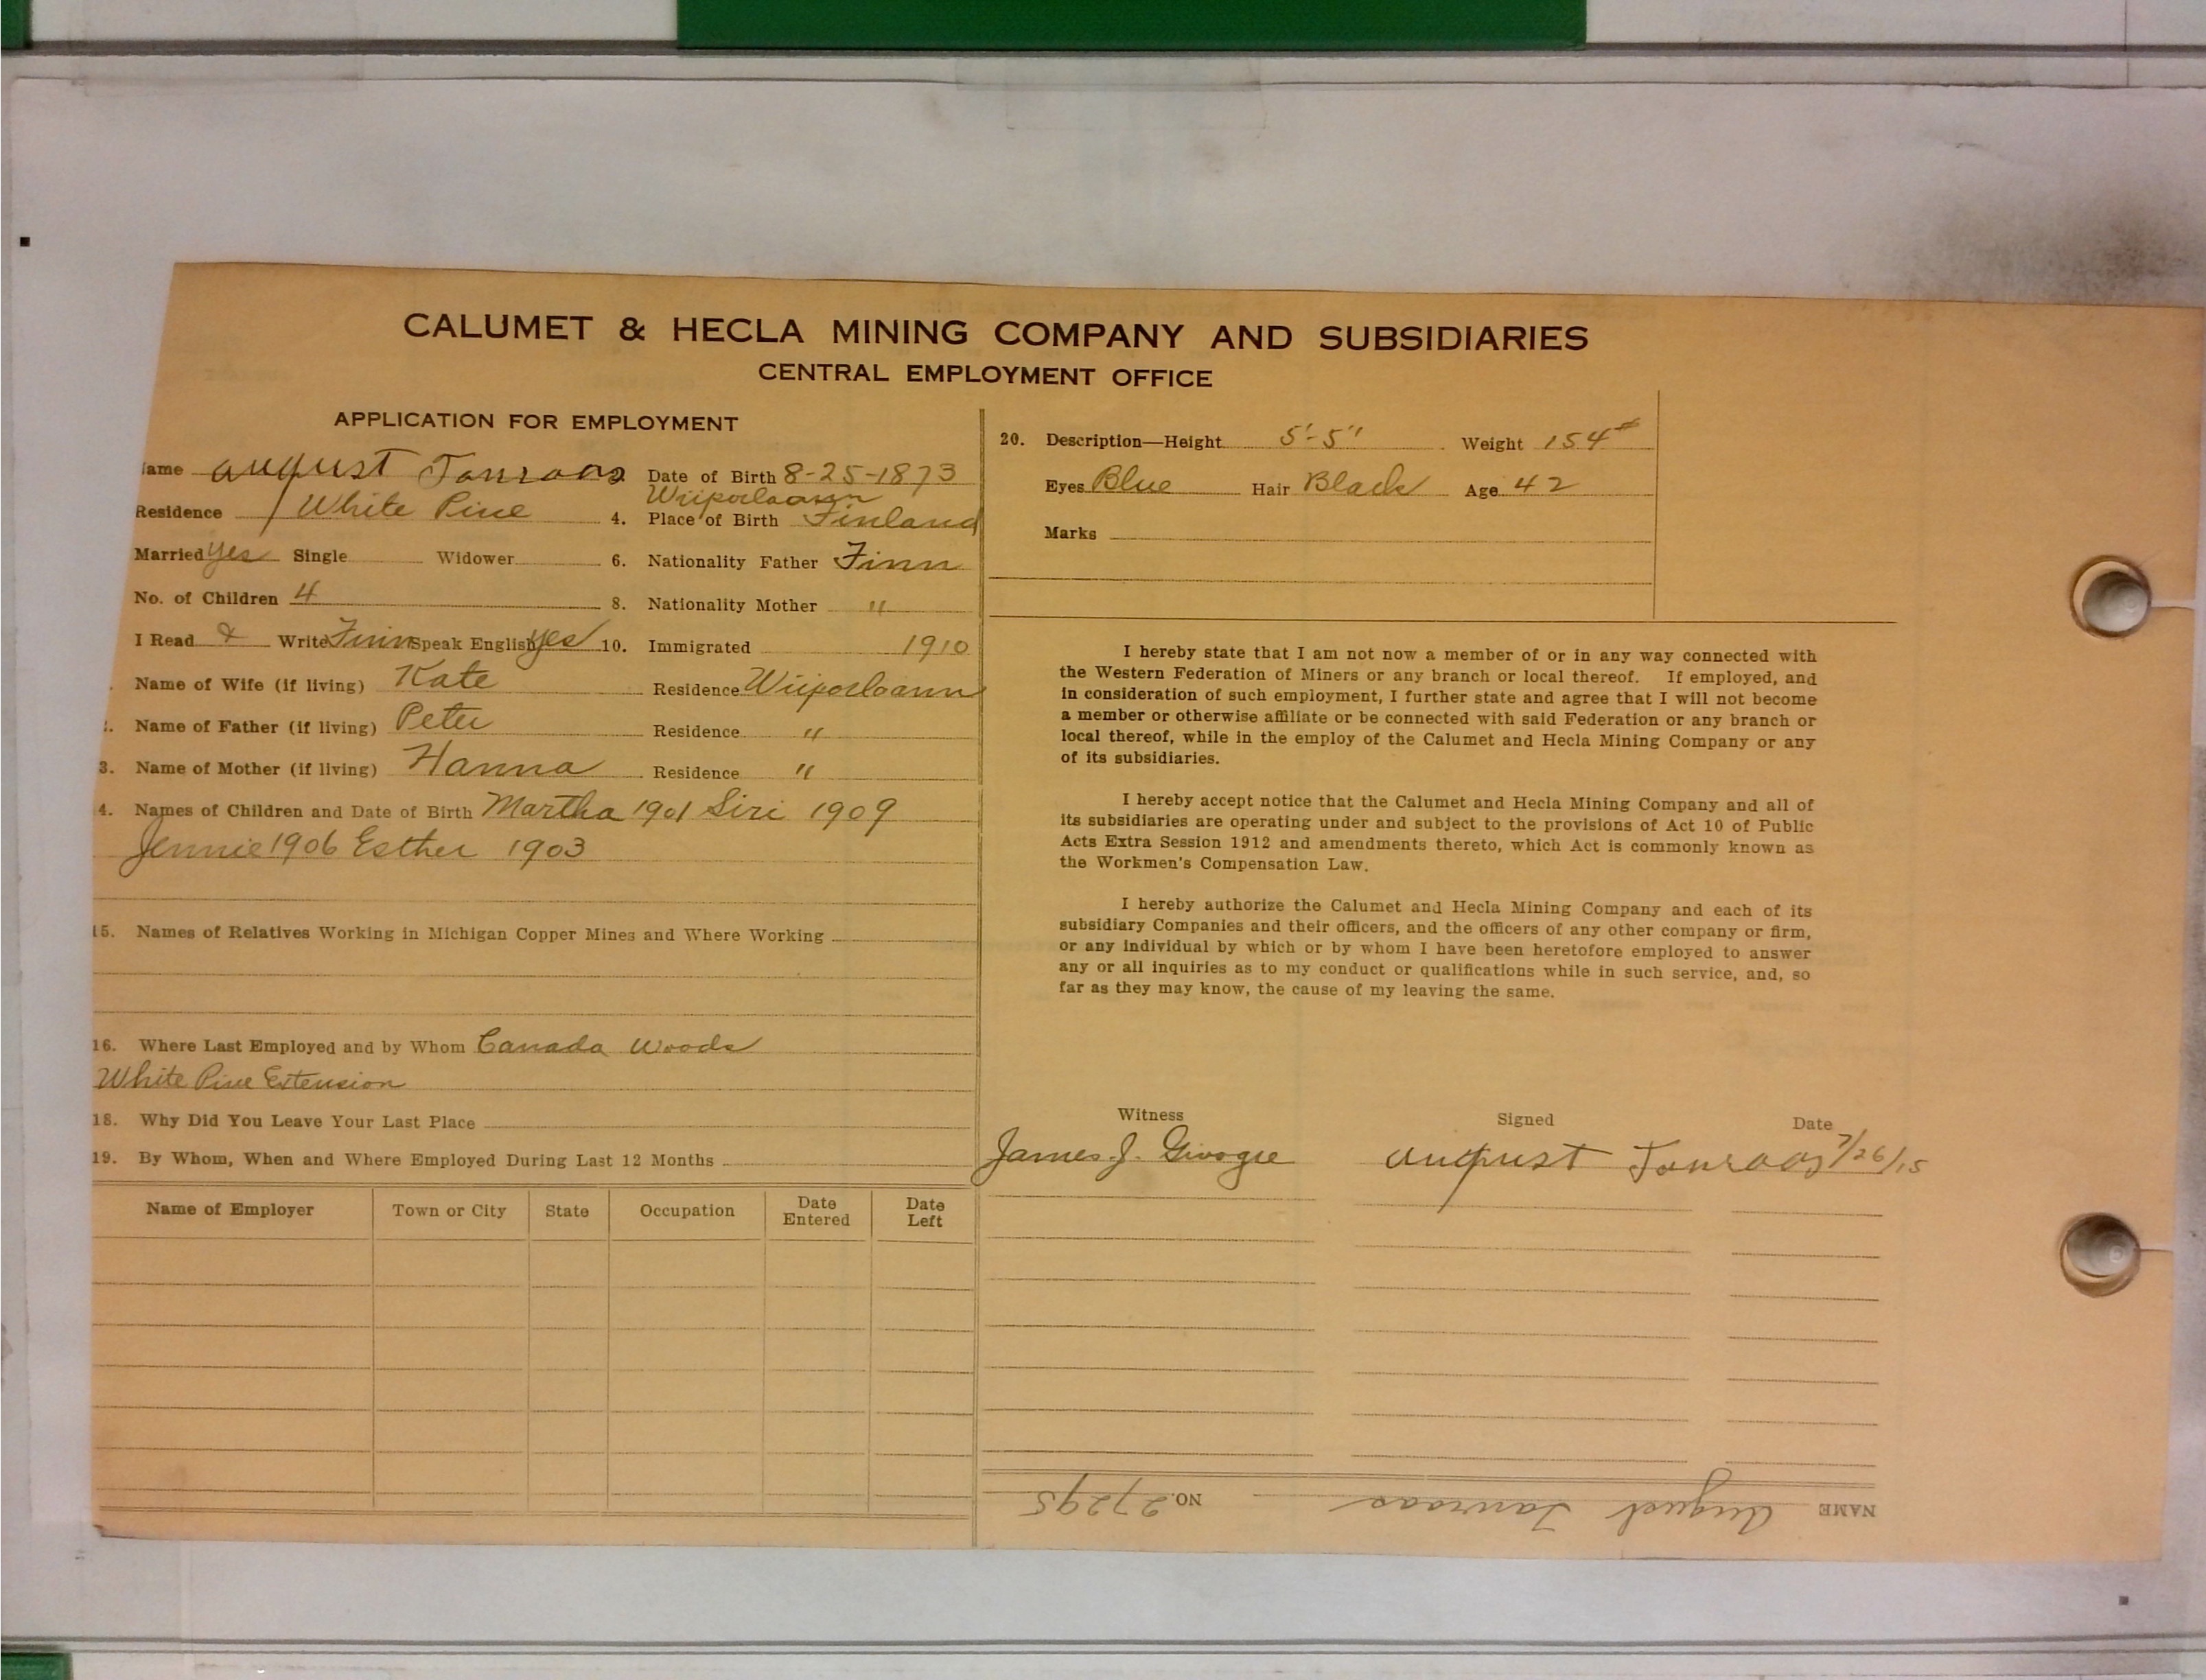 CALUMET & HECLA MINING COMPANY AND SUBSIDIARIES
CENTRAL EMPLOYMENT OFFICE
APPLICATION FOR EMPLOYMENT
ame August Date of Birth 8-25-1873
Residence White Pine 4. Place of Birth Finland
Married yes Single Widower 6. Nationality Father Finn
No. of Children 4 8. Nationality Mother "
I Read & Write Finn Speak English yes 10. Immigrated 1910
Name of Wife (if living) Kate Residence
Name of Father (if living) Peter Residence "
3. Name of Mother (if living) Hanna Residence "
4. Names of Children and Date of Birth Martha 1901 Siri 1909
Jennie 1906 Esther 1903
15. Names of Relatives Working in Michigan Copper Mines and Where Working
16. Where Last Employed and by Whom Canada Woods
White Pine Extension
18. Why Did You Leave Your Last Place
19. By Whom, When and Where Employed During Last 12 Months
Name of Employer Town or City State Occupation Date Entered Date Left
20. Description—Height 5'-5" Weight 154#
Eyes Blue Hair Black Age 42
Marks
I hereby state that I am not now a member of or in any way connected with
the Western Federation of Miners or any branch or local thereof. If employed, and
in consideration of such employment, I further state and agree that I will not become
a member or otherwise affiliate or be connected with said Federation or any branch or
local thereof, while in the employ of the Calumet and Hecla Mining Company or any
of its subsidiaries.
I hereby accept notice that the Calumet and Hecla Mining Company and all of
its subsidiaries are operating under and subject to the provisions of Act 10 of Public
Acts Extra Session 1912 and amendments thereto, which Act is commonly known as
the Workmen's Compensation Law.
I hereby authorize the Calumet and Hecla Mining Company and each of its
subsidiary Companies and their officers, and the officers of any other company or firm,
or any individual by which or by whom I have been heretofore employed to answer
any or all inquiries as to my conduct or qualifications while in such service, and, so
far as they may know, the cause of my leaving the same.
Witness Signed Date
James J. August 7/26/15
NAME August NO. 27295